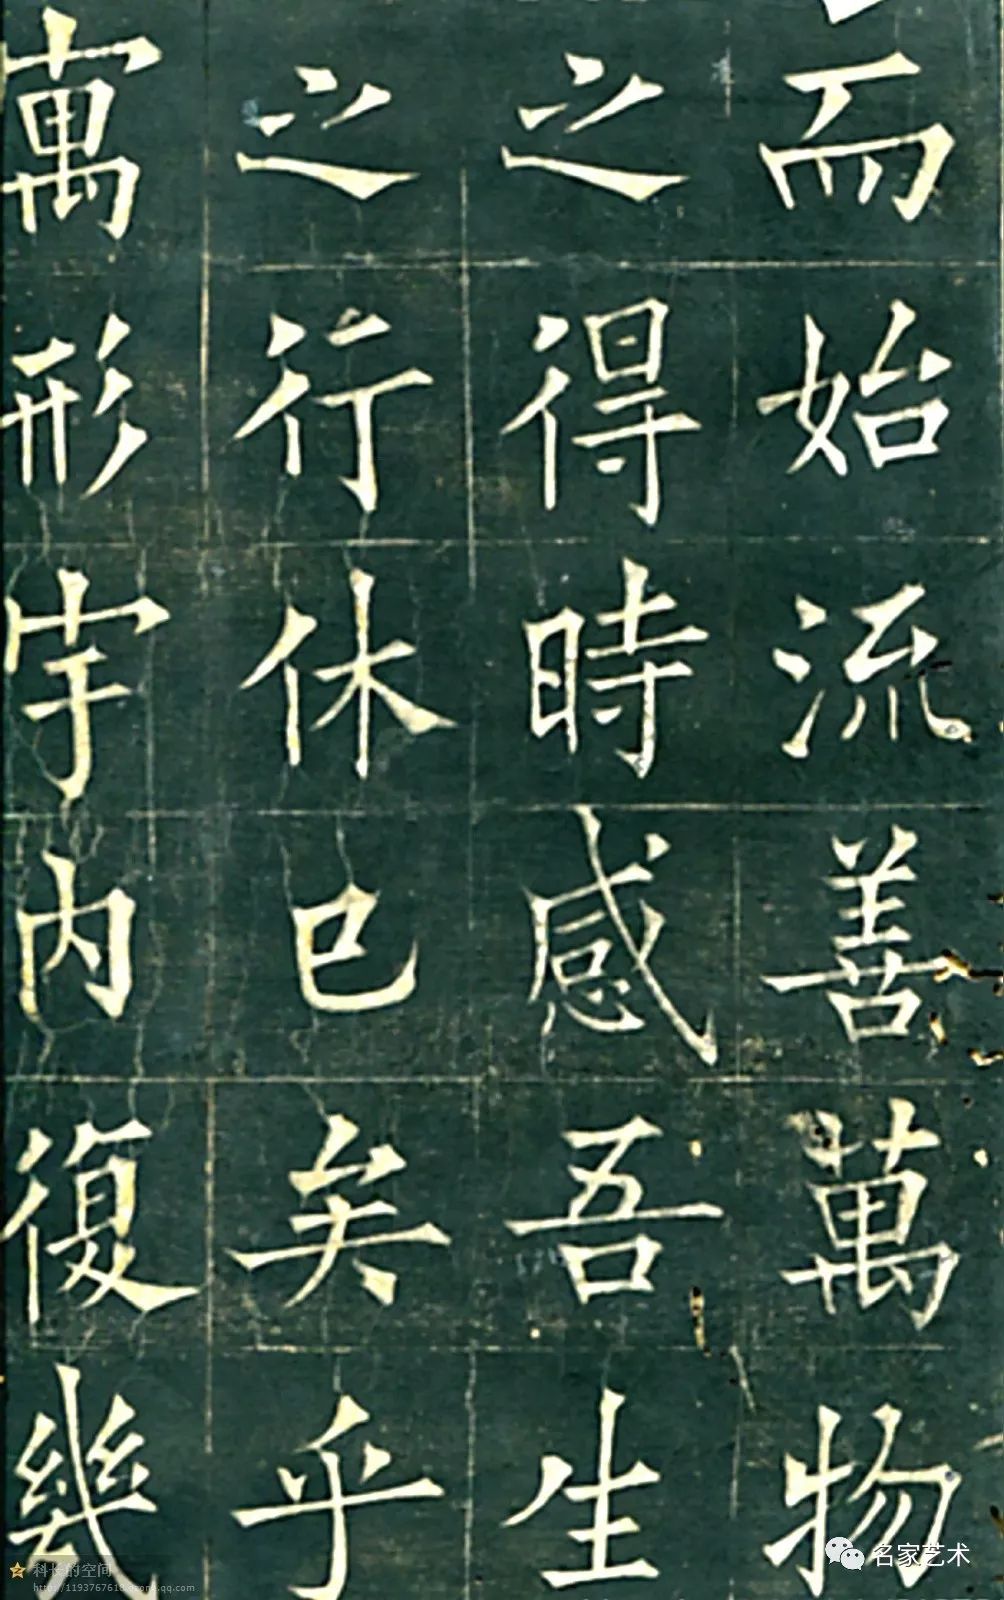 而始流善萬物
之得時感吾生
之行休已矣乎
萬形宇内復幾
名家艺术
科长的空间
http://1193767618.qzone.qq.com